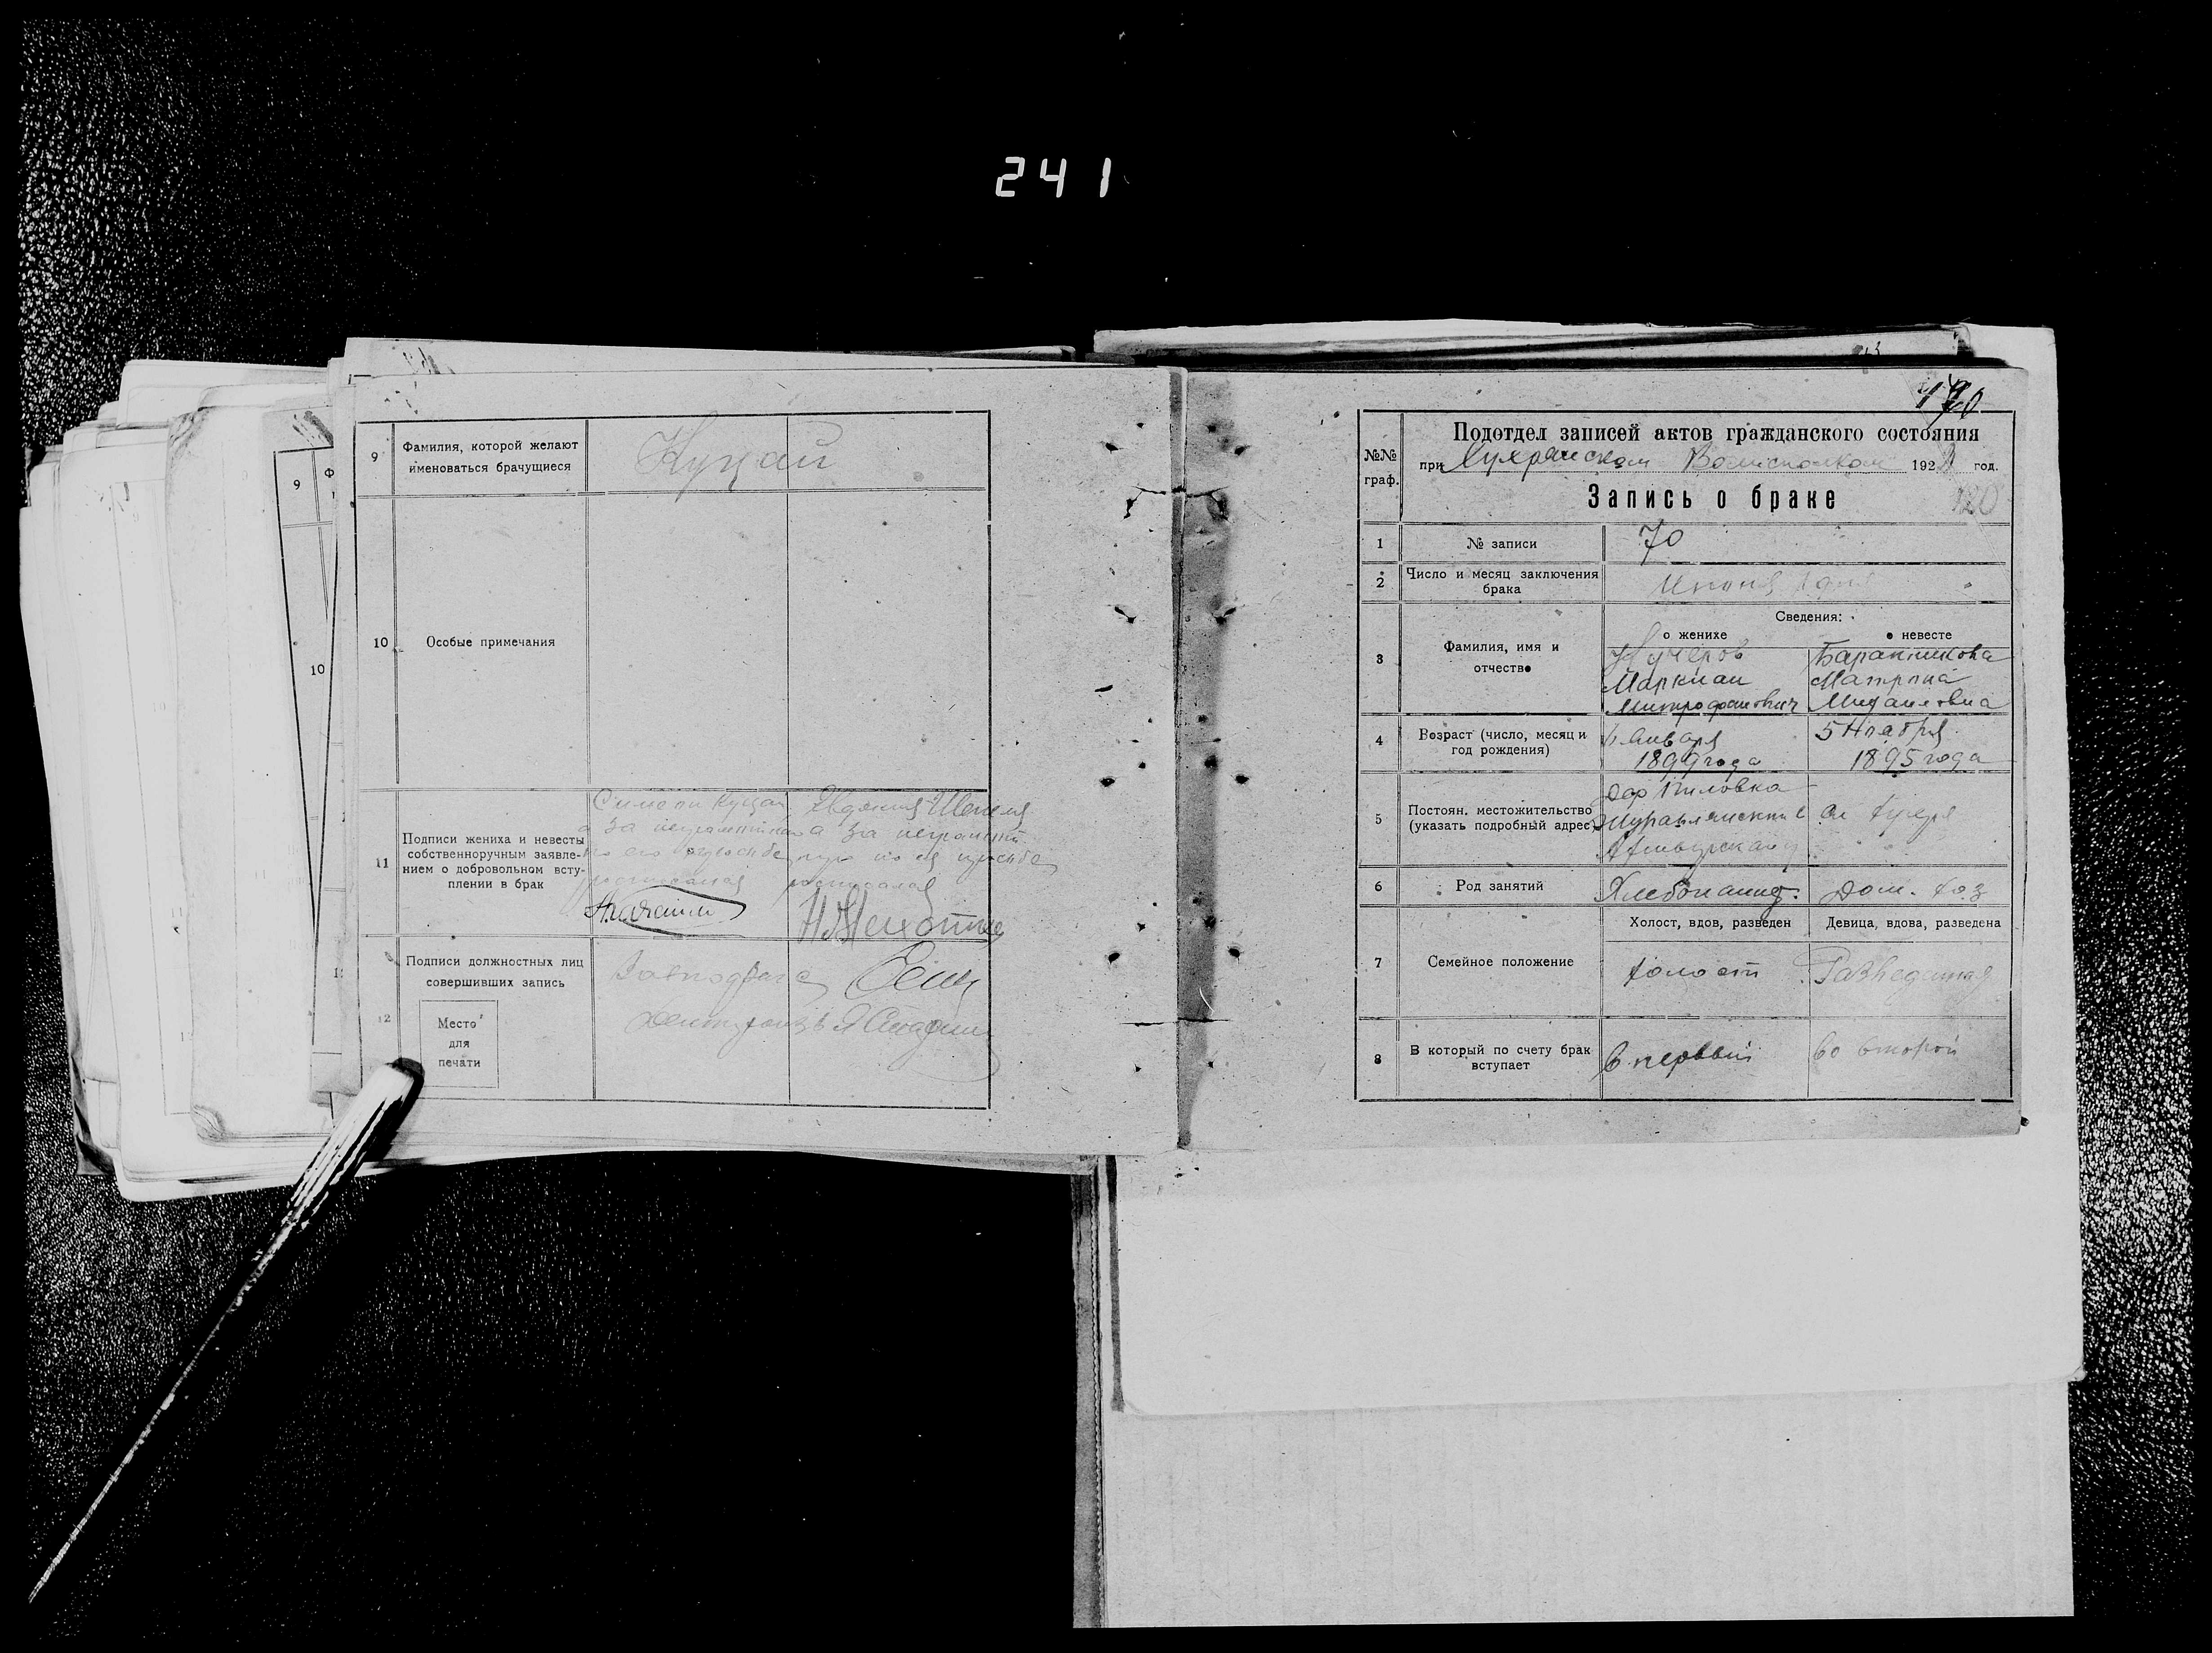 241
9
Ф
10
9
Фамилия, которой желают
именоваться брачущиеся
Куцай
10
Особые примечания
11
Подписи жениха и невесты
собственноручным заявле-
нием о добровольном всту-
плении в брак
Симеон Куцай
а за неграмотного
по его просьбе
росписался
Евдокия Шепеля
а за неграмот
ную по ея просьбе
росписался
12
Подписи должностных лиц
совершивших запись
Место
для
печати
170
№№
граф.
Подотдел записей актов гражданского состояния
при Хухранском Волисполком 192 год.
Запись о браке
120
1
№ записи
70
2
Число и месяц заключения
брака
Июня
Сведения:
3
Фамилия, имя и
отчество
о женихе
Кучеров
Маркиан
Митрофанович
о невесте
Баранникова
Матрона
Михайловна
4
Возраст (число, месяц и
год рождения)
Января
1899 года
5 Ноября
1895 года
5
Постоян. местожительство
(указать подробный адрес)
дер Пиловка
6
Род занятий
Хлебопашец.
Дом. хоз
7
Семейное положение
Холост, вдов, разведен
холост
Девица, вдова, разведена
Разведенная
8
В который по счету брак
вступает
в первый
во второй